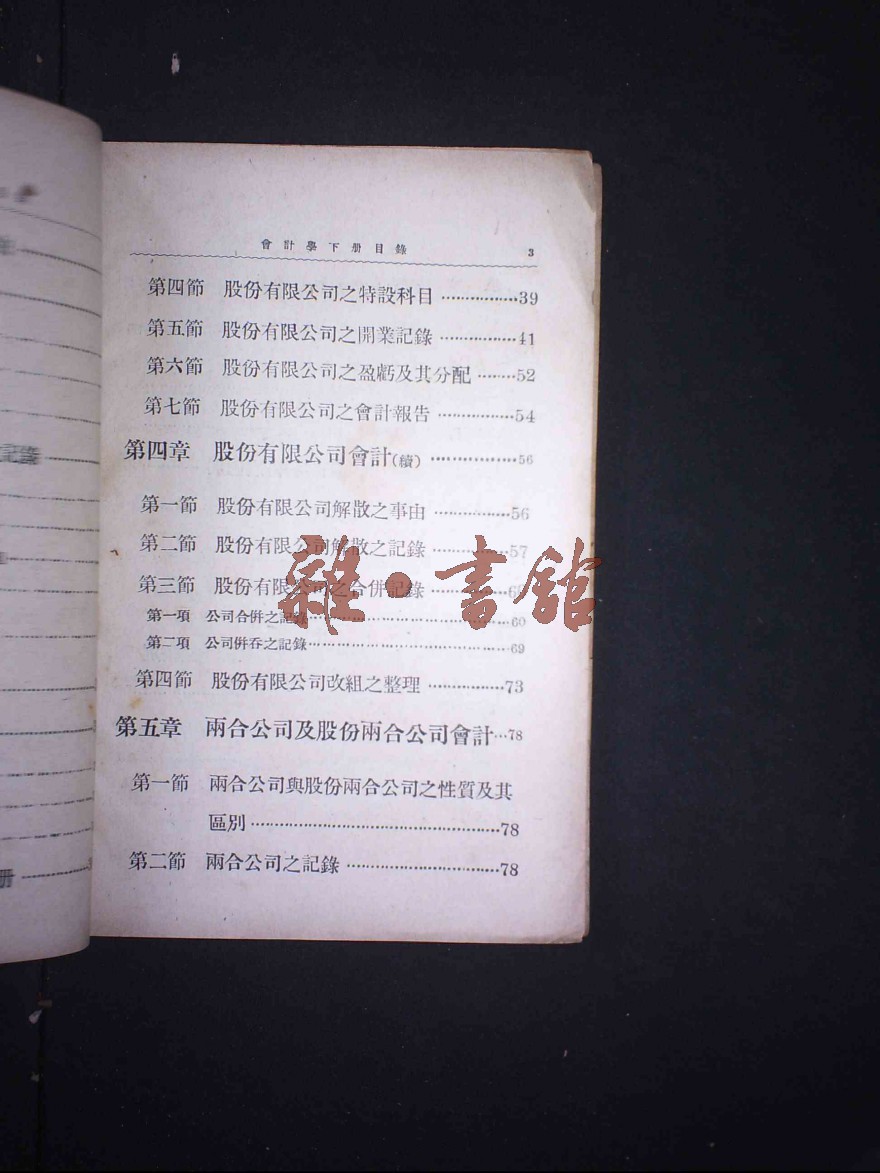 會計學下册目錄 3
第四節 股份有限公司之特設科目 ················39
第五節 股份有限公司之開業記錄 ················41
第六節 股份有限公司之盈虧及其分配 ········52
第七節 股份有限公司之會計報告 ················54
第四章 股份有限公司會計(續) ················56
第一節 股份有限公司解散之事由 ················56
第二節 股份有限公司解散之記錄 ················57
第三節 股份有限公司之合併記錄
第一項 公司合併之記錄 ················60
第二項 公司併吞之記錄 ················69
第四節 股份有限公司改組之整理 ················73
第五章 兩合公司及股份兩合公司會計 ···78
第一節 兩合公司與股份兩合公司之性質及其
區別 ················78
第二節 兩合公司之記錄 ················78
雜·書館